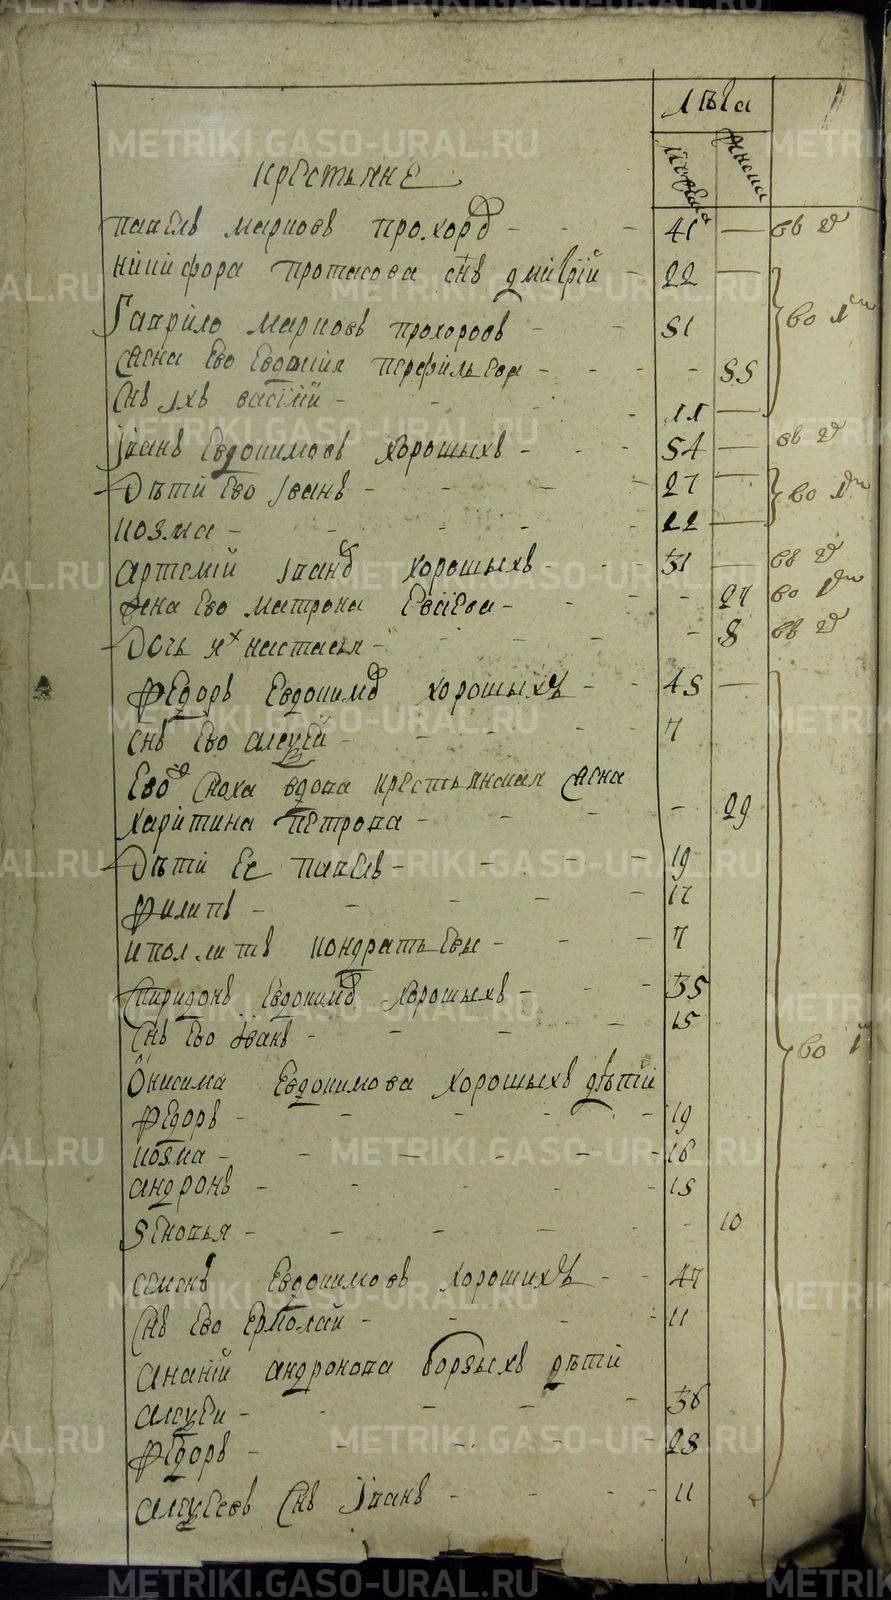 лѣта
мужеска женска
крестьянѣ
павелъ марковъ прохоро - - - 41 — въ
никифора протасова снъ дмитрій - 22 —
Гаврило марковъ прохоровъ - - 51 во
жена ево евдокія перфильева - - - 55
снъ ихъ васілій - - - 11 —
Іванъ Евдокимовъ хорошыхъ - - - 54 — въ
дѣти ево Іванъ - - - 27 — во
козма - - - 22 —
артемій Івано хорошыхъ - - 31 — въ
жена ево матрона - - - 27 во
дочь их настасья - - - 8 въ
Федоръ Евдокимо хорошыхъ - - 45 —
снъ ево алексей - - - 7
Ево сноха вдова крестьянская жена
харитина петрова - - - 29
дѣти ее павелъ - - - 19
филипъ - - - 17
иполлитъ кондратьевы - - - 7
спиридонъ Евдокимо хорошыхъ - - - 35
снъ ево іванъ - - - 15
Онисима Евдокимова хорошыхъ дѣтій
Федоръ - - - 19 во
козма - - - 16
андронъ - - - 15
зеновья - - - 10
семенъ Евдокимовъ хорошихъ - - 47
снъ ево Ермолай - - - 11
ананій андронова борзыхъ дѣтій
алексеи - - - 36
Федоръ - - - 28
алексеевъ снъ Іванъ - - - 11
METRIKI.GASO-URAL.RU